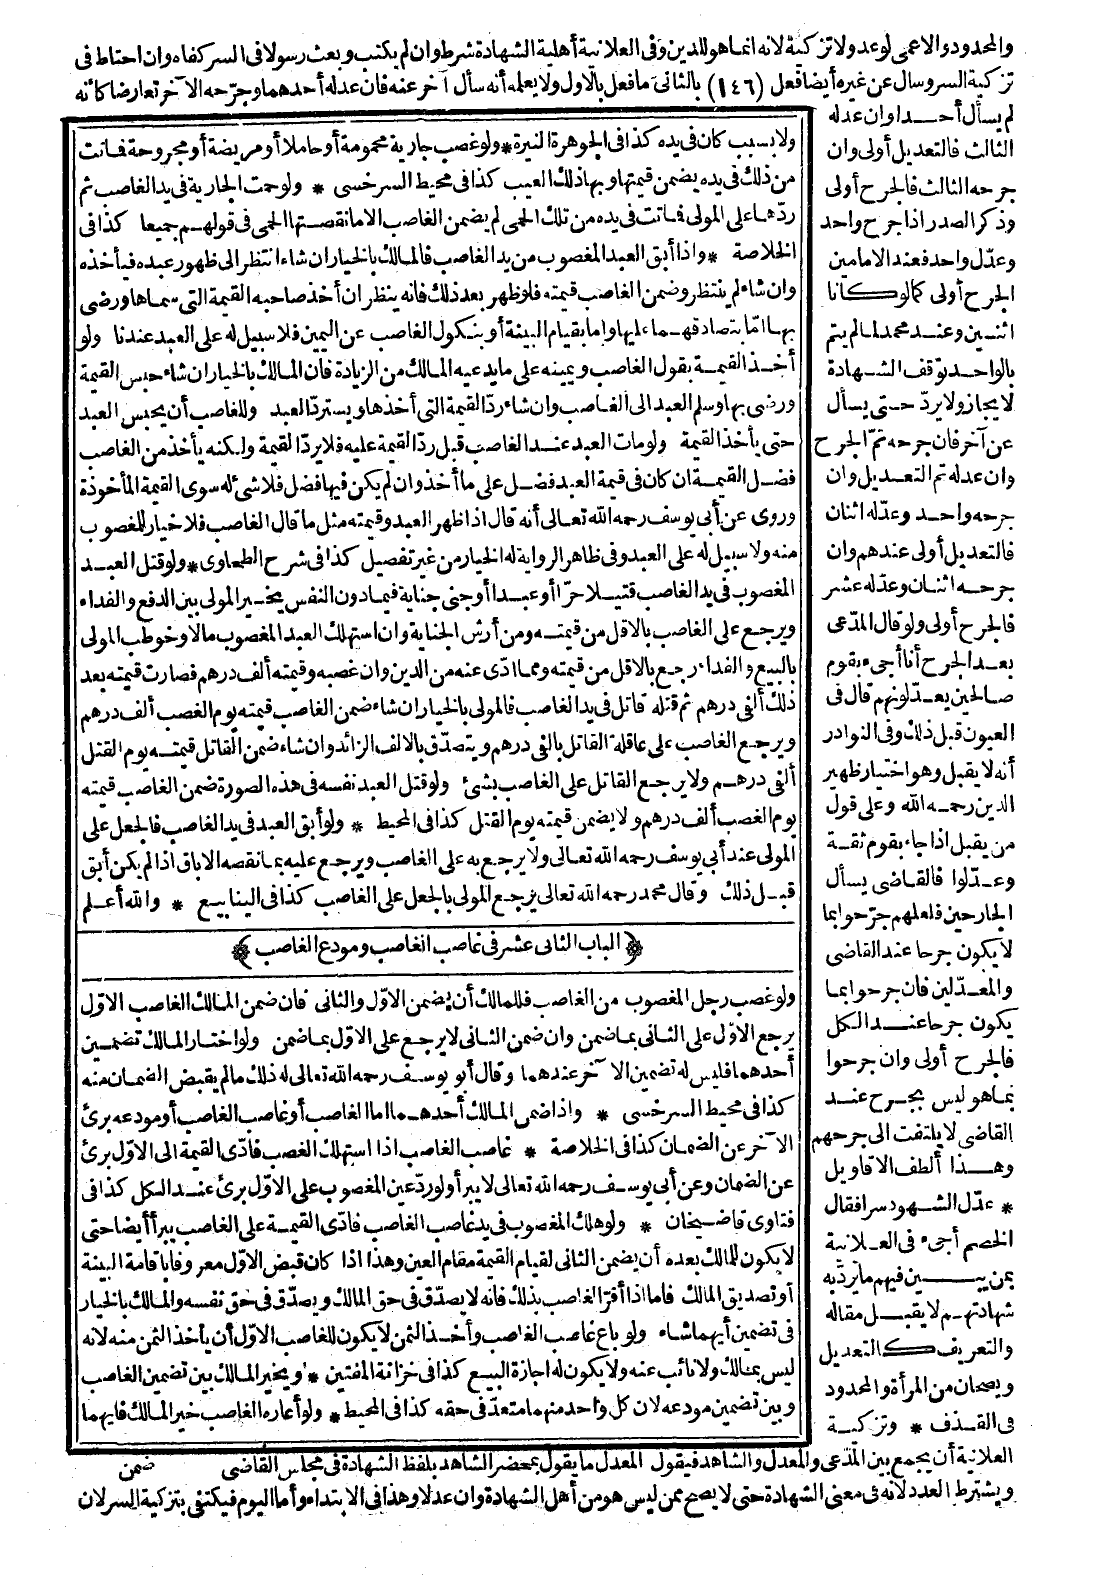 والمحدود والاعمى لو عدولا تزكية لانه انما هو للدين وفى العلانية أهلية الشهادة شرط وان لم يكتب وبعث رسولا فى السر كفاه وان احتاط فى
تزكية السر وسال عن غيره أيضا فعل (١٤٦) بالثانى ما فعل بالاول ولا يعلمه أنه سأل آخر عنه فان عدله أحدهما وجرّحه الآخر تعارضا كانه
لم يسأل أحدا وان عدله
الثالث فالتعديل أولى وان
جرحه الثالث فالجرح أولى
وذكر الصدر اذا جرح واحد
وعدّل واحد فعند الامامين
الجرح أولى كمالو كانا
اثنين وعند محمد لما لم يتم
بالواحد توقف الشهادة
لا يجاز ولا يردّ حتى يسأل
عن آخر فان جرحه تمّ الجرح
وان عدله تم التعديل وان
جرحه واحد وعدّله اثنان
فالتعديل أولى عندهم وان
جرحه اثنان وعدّله عشر
فالجرح أولى ولو قال المدّعى
بعد الجرح أنا أجىء بقوم
صالحين يعدّلونهم قال فى
العيون قبل ذلك وفى النوادر
أنه لا يقبل وهو اختيار ظهير
الدين رحمه الله وعلى قول
من يقبل اذا جاء بقوم ثقة
وعدّلوا فالقاضى يسأل
الجارحين فلعلهم جرّحوا بما
لا يكون جرحا عند القاضى
والمعدّلين فان جرحوا بما
يكون جرحا عند الكل
فالجرح أولى وان جرحوا
بما هو ليس بجرح عند
القاضى لا يلتفت الى جرحهم
وهذا ألطف الاقاويل
* عدّل الشهود سرا فقال
الخصم أجىء فى العلانية
بمن يبين فيهم ما يردّ به
شهادتهم لا يقبل مقاله
والتعريف كالتعديل
ويصحان من المرأة والمحدود
فى القذف * وتزكية
العلانية أن يجمع بين المدّعى والمعدل والشاهد فيقول المعدل ما يقول بمحضر الشاهد بلفظ الشهادة فى مجلس القاضى
ويشترط العدد لانه فى معنى الشهادة حتى لا يصح ممن ليس هو من أهل الشهادة وان عدلا وهذا فى الابتداء وأما اليوم فيكتفى بتزكية السر لان
ولا بسبب كان فى يده كذا فى الجوهرة النيرة * ولو غصب جارية محمومة أو حاملا أو مريضة أو مجروحة فماتت
من ذلك فى يده يضمن قيمتها وبها ذلك العيب كذا فى محيط السرخسى * ولو حمت الجارية فى يد الغاصب ثم
ردّها على المولى فماتت فى يده من تلك الحمى لم يضمن الغاصب الا ما نقصتها الحمى فى قولهم جميعا كذا فى
الخلاصة * واذا أبق العبد المغصوب من يد الغاصب فالمالك بالخيار ان شاء انتظر الى ظهور عبده فيأخذه
وان شاء لم ينتظر وضمن الغاصب قيمته فلو ظهر بعد ذلك فانه ينظر ان أخذ صاحبه القيمة التى سماها ورضى
بها امّا بتصادقهما عليها واما بقيام البينة أو بنكول الغاصب عن اليمين فلا سبيل له على العبد عندنا ولو
أخذ القيمة بقول الغاصب ويمينه على ما يدعيه المالك من الزيادة فان المالك بالخيار ان شاء حبس القيمة
ورضى بها وسلم العبد الى الغاصب وان شاء ردّ القيمة التى أخذها ويستردّ العبد وللغاصب أن يحبس العبد
حتى يأخذ القيمة ولو مات العبد عند الغاصب قبل ردّ القيمة عليه فلا يردّ القيمة ولكنه يأخذ من الغاصب
فضل القيمة ان كان فى قيمة العبد فضل على ما أخذ وان لم يكن فيها فضل فلا شئ له سوى القيمة المأخوذة
وروى عن أبى يوسف رحمه الله تعالى أنه قال اذا ظهر العبد وقيمته مثل ما قال الغاصب فلا خيار للمغصوب
منه ولا سبيل له على العبد وفى ظاهر الرواية له الخيار من غير تفصيل كذا فى شرح الطحاوى * ولو قتل العبد
المغصوب فى يد الغاصب قتيلا حرّا أو عبدا أو جنى جناية فيما دون النفس يخير المولى بين الدفع والفداء
ويرجع على الغاصب بالاقل من قيمته ومن أرش الجناية وان استهلك العبد المغصوب مالا وخوطب المولى
بالبيع والفداء رجع بالاقل من قيمته ومما ادّى عنه من الدين وان غصبه وقيمته ألف درهم فصارت قيمته بعد
ذلك ألفى درهم ثم قتله قاتل فى يد الغاصب فالمولى بالخيار ان شاء ضمن الغاصب قيمته يوم الغصب ألف درهم
ويرجع الغاصب على عاقلة القاتل بالفى درهم ويتصدّق بالالف الزائد وان شاء ضمن القاتل قيمته يوم القتل
ألفى درهم ولا يرجع القاتل على الغاصب بشئ ولو قتل العبد نفسه فى هذه الصورة ضمن الغاصب قيمته
يوم الغصب ألف درهم ولا يضمن قيمته يوم القتل كذا فى المحيط * ولو أبق العبد فى يد الغاصب فالجعل على
المولى عند أبى يوسف رحمه الله تعالى ولا يرجع به على الغاصب ويرجع عليه بما نقصه الاباق اذا لم يكن أبق
قبل ذلك وقال محمد رحمه الله تعالى يرجع المولى بالجعل على الغاصب كذا فى الينابيع * والله أعلم
﴿الباب الثانى عشر فى غاصب الغاصب ومودع الغاصب﴾
ولو غصب رجل المغصوب من الغاصب فللمالك أن يضمن الاوّل والثانى فان ضمن المالك الغاصب الاوّل
يرجع الاوّل على الثانى بما ضمن وان ضمن الثانى لا يرجع على الاوّل بما ضمن ولو اختار المالك تضمين
أحدهما فليس له تضمين الآخر عندهما وقال أبو يوسف رحمه الله تعالى له ذلك ما لم يقبض الضمان منه
كذا فى محيط السرخسى * واذا ضمن المالك أحدهما اما الغاصب أو غاصب الغاصب أو مودعه برئ
الآخر عن الضمان كذا فى الخلاصة * غاصب الغاصب اذا استهلك الغصب فادّى القيمة الى الاوّل برئ
عن الضمان وعن أبى يوسف رحمه الله تعالى لا يبرأ ولو ردّ عين المغصوب على الاوّل برئ عند الكل كذا فى
فتاوى قاضيخان * ولو هلك المغصوب فى يد غاصب الغاصب فادّى القيمة على الغاصب يبرأ أيضا حتى
لا يكون للمالك بعده أن يضمن الثانى لقيام القيمة مقام العين وهذا اذا كان قبض الاوّل معروفا باقامة البينة
أو تصديق المالك فاما اذا أقرّ الغاصب بذلك فانه لا يصدّق فى حق المالك ويصدّق فى حق نفسه والمالك بالخيار
فى تضمين أيهما شاء ولو باع غاصب الغاصب وأخذ الثمن لا يكون للغاصب الاوّل أن يأخذ الثمن منه لانه
ليس بمالك ولا نائب عنه ولا يكون له اجازة البيع كذا فى خزانة المفتين * ويخير المالك بين تضمين الغاصب
وبين تضمين مودعه لان كل واحد منهما متعدّ فى حقه كذا فى المحيط * ولو أعاره الغاصب خير المالك فايهما
ضمن